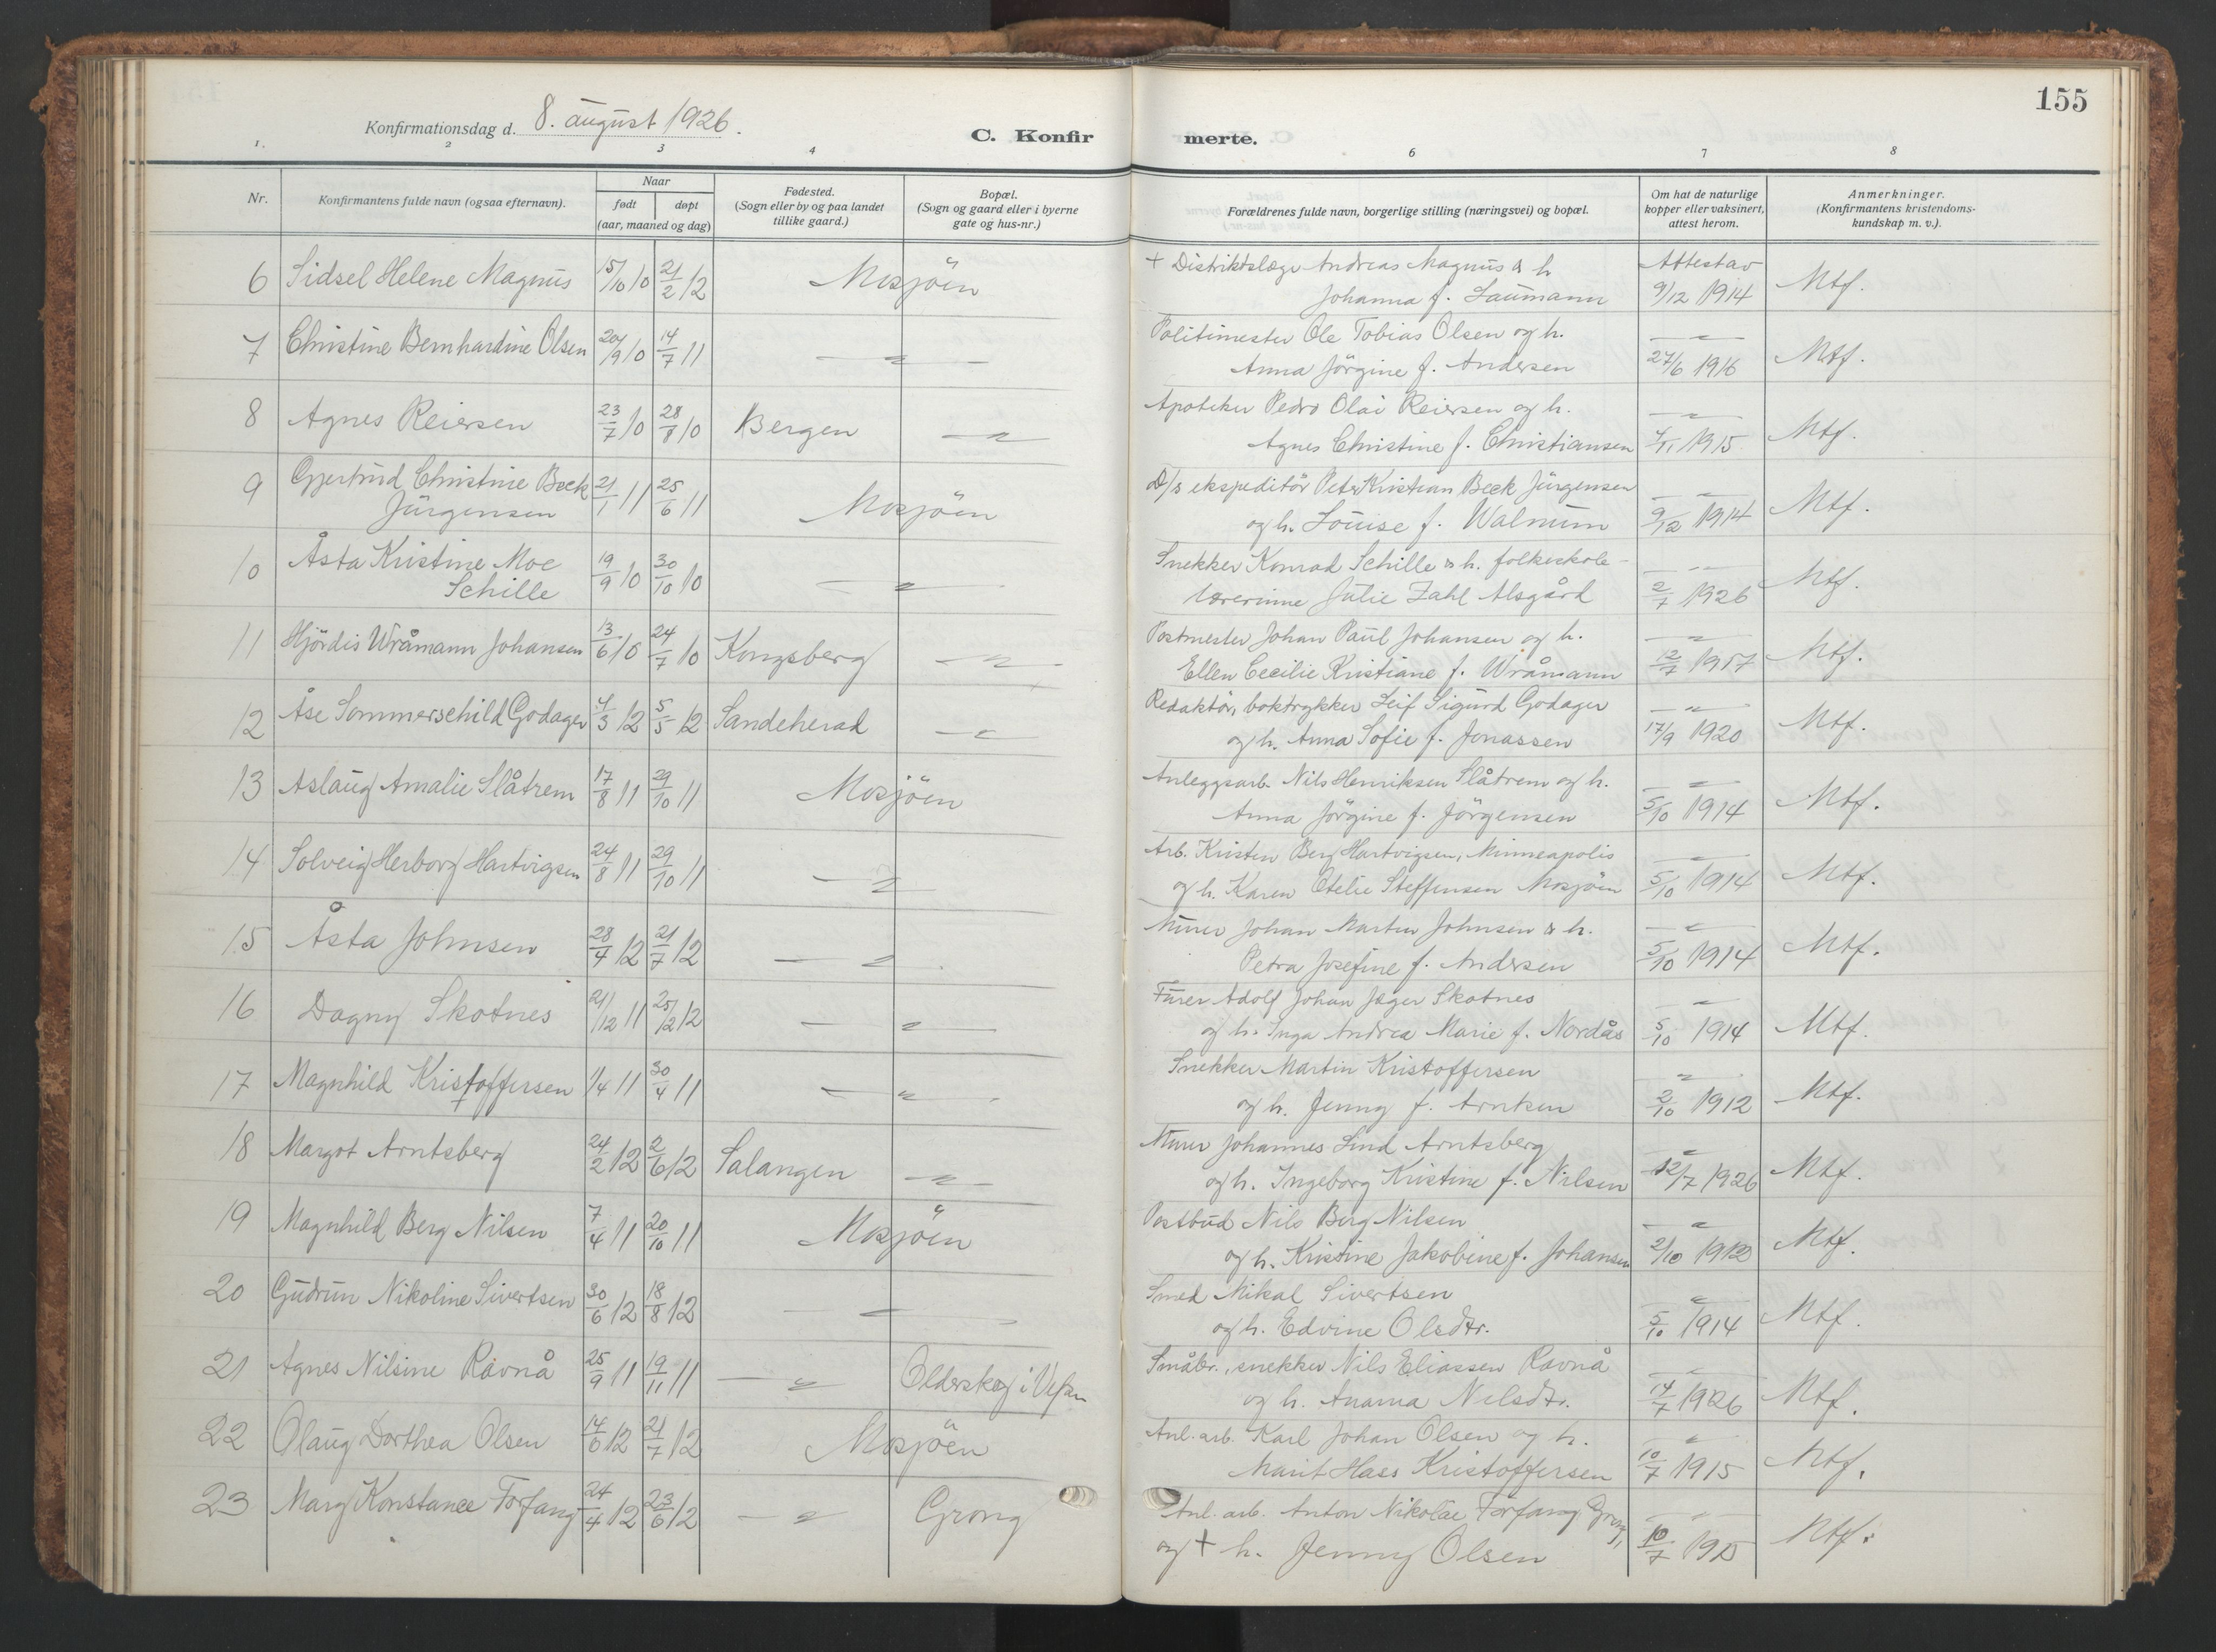 155
Konfirmationsdag d. 8. august 1926.
C. Konfir merte.
1. 2 3 4 6 7 8
Nr.
Konfirmantens fulde navn (ogsaa efternavn).
Naar
født døpt
(aar, maaned og dag)
Fødested.
(Sogn eller by og paa landet
tillike gaard.)
Bopæl.
(Sogn og gaard eller i byerne
gate og hus-nr.)
Forældrenes fulde navn, borgerlige stilling (næringsvei) og bopæl.
Om hat de naturlige
kopper eller vaksinert,
attest herom.
Anmerkninger.
(Konfirmantens kristendoms-
kundskap m. v.).
6 Sidsel Helene Magnus 15/10 10 21/2 12 Mosjöen + Distriktslæge Andreas Magnus & h. Attest av
Johanna f. Laumann 9/12 1914 Mtf.
7 Christine Bernhardine Olsen 20/9 10 14/7 11 — " — Politimester Ole Tobias Olsen og h. — " —
Anna Jörgine f. Andersen 27/6 1916 Mtf.
8 Agnes Reiersen 23/7 10 28/8 10 Bergen — " — Apoteker Pedro Olai Reiersen og h. — " —
Agnes Christine f. Christiansen 1915 Mtf.
9 Gjertrud Christine Beck 21/1 11 25/6 11 Mosjöen D/s ekspeditör Peter Kristian Beck Jürgensen — " —
Jürgensen og h. Louise f. Walnum 9/12 1914 Mtf.
10 Åsta Kristine Moe 19/9 10 30/10 10 — " — Snekker Konrad Schille & h. folkeskole- — " —
Schille lærerinne Julie Zahl Alsgård 2/7 1926 Mtf.
11 Hjördis Wråmann Johansen 13/6 10 24/7 10 Kongsberg — " — Postmester Johan Paul Johansen og h. — " —
Ellen Cecilie Kristiane f. Wråmann 12/7 1917 Mtf.
12 Åse Sommerschild Godager 4/3 12 5/5 12 Sandeherad — " — Redaktör, boktrykker Leif Sigurd Godager — " —
og h. Anna Sofie f. Jonassen 17/9 1920 Mtf.
13 Aslaug Amalie Slåtrem 17/8 11 29/10 11 Mosjöen Anleggsarb. Nils Henriksen Slåtrem og h. — " —
Anna Jörgine f. Jörgensen 5/10 1914 Mtf.
14 Solveig Herborg Hartvigsen 24/8 11 29/10 11 — " — Arb. Kristen Berg Hartvigsen, Minneapolis — " —
og h. Karen Otelie Steffensen Mosjöen 5/10 1914 Mtf.
15 Åsta Johnsen 28/4 12 21/7 12 — " — Murer Johan Martin Johnsen & h. — " —
Petra Josefine f. Andersen 5/10 1914 Mtf.
16 Dagny Skotnes 21/12 11 25/2 12 — " — Furer Adolf Johan Jæger Skotnes — " —
og h. Inga Andrea Marie f. Nordås 5/10 1914 Mtf.
17 Magnhild Kristoffersen 1/4 11 30/4 11 — " — Snekker Martin Kristoffersen — " —
og h. Jenny f. Arntsen 2/10 1912 Mtf.
18 Margot Arntsberg 24/2 12 2/6 12 Salangen — " — Murer Johannes Lind Arntsberg — " —
og h. Ingeborg Kristine f. Nilsen 12/7 1926 Mtf.
19 Magnhild Berg Nilsen 7/4 11 20/10 11 Mosjöen Postbud Nils Berg Nilsen — " —
og h. Kristine Jakobine f. Johansen 2/10 1912 Mtf.
20 Gudrun Nikoline Sivertsen 30/6 12 18/8 12 — " — Smed Mikal Sivertsen — " —
og h. Edvine Olsdtr. 5/10 1914 Mtf.
21 Agnes Nilsine Ravnå 25/9 11 19/11 11 — " — Olderskog i Vefsn Småbr., snekker Nils Eliassen Ravnå — " —
og h. Anama Nilsdtr. 14/7 1926 Mtf.
22 Olaug Dorthea Olsen 14/6 12 21/7 12 Mosjöen Anl. arb. Karl Johan Olsen og h. — " —
Marit Haes Kristoffersen 10/7 1915 Mtf.
23 Mary Konstance Forfang 24/4 12 23/6 12 — " — Grong Anl. arb. Anton Nikolai Forfang, Grong, — " —
og + h. Jenny Olsen 10/7 1915 Mtf.